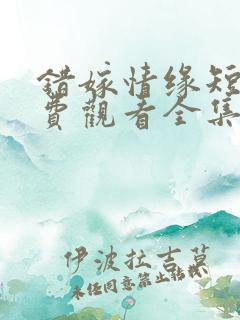 错嫁情缘短
费觀看全集
伊波拉吉莫
未经同意禁止转载